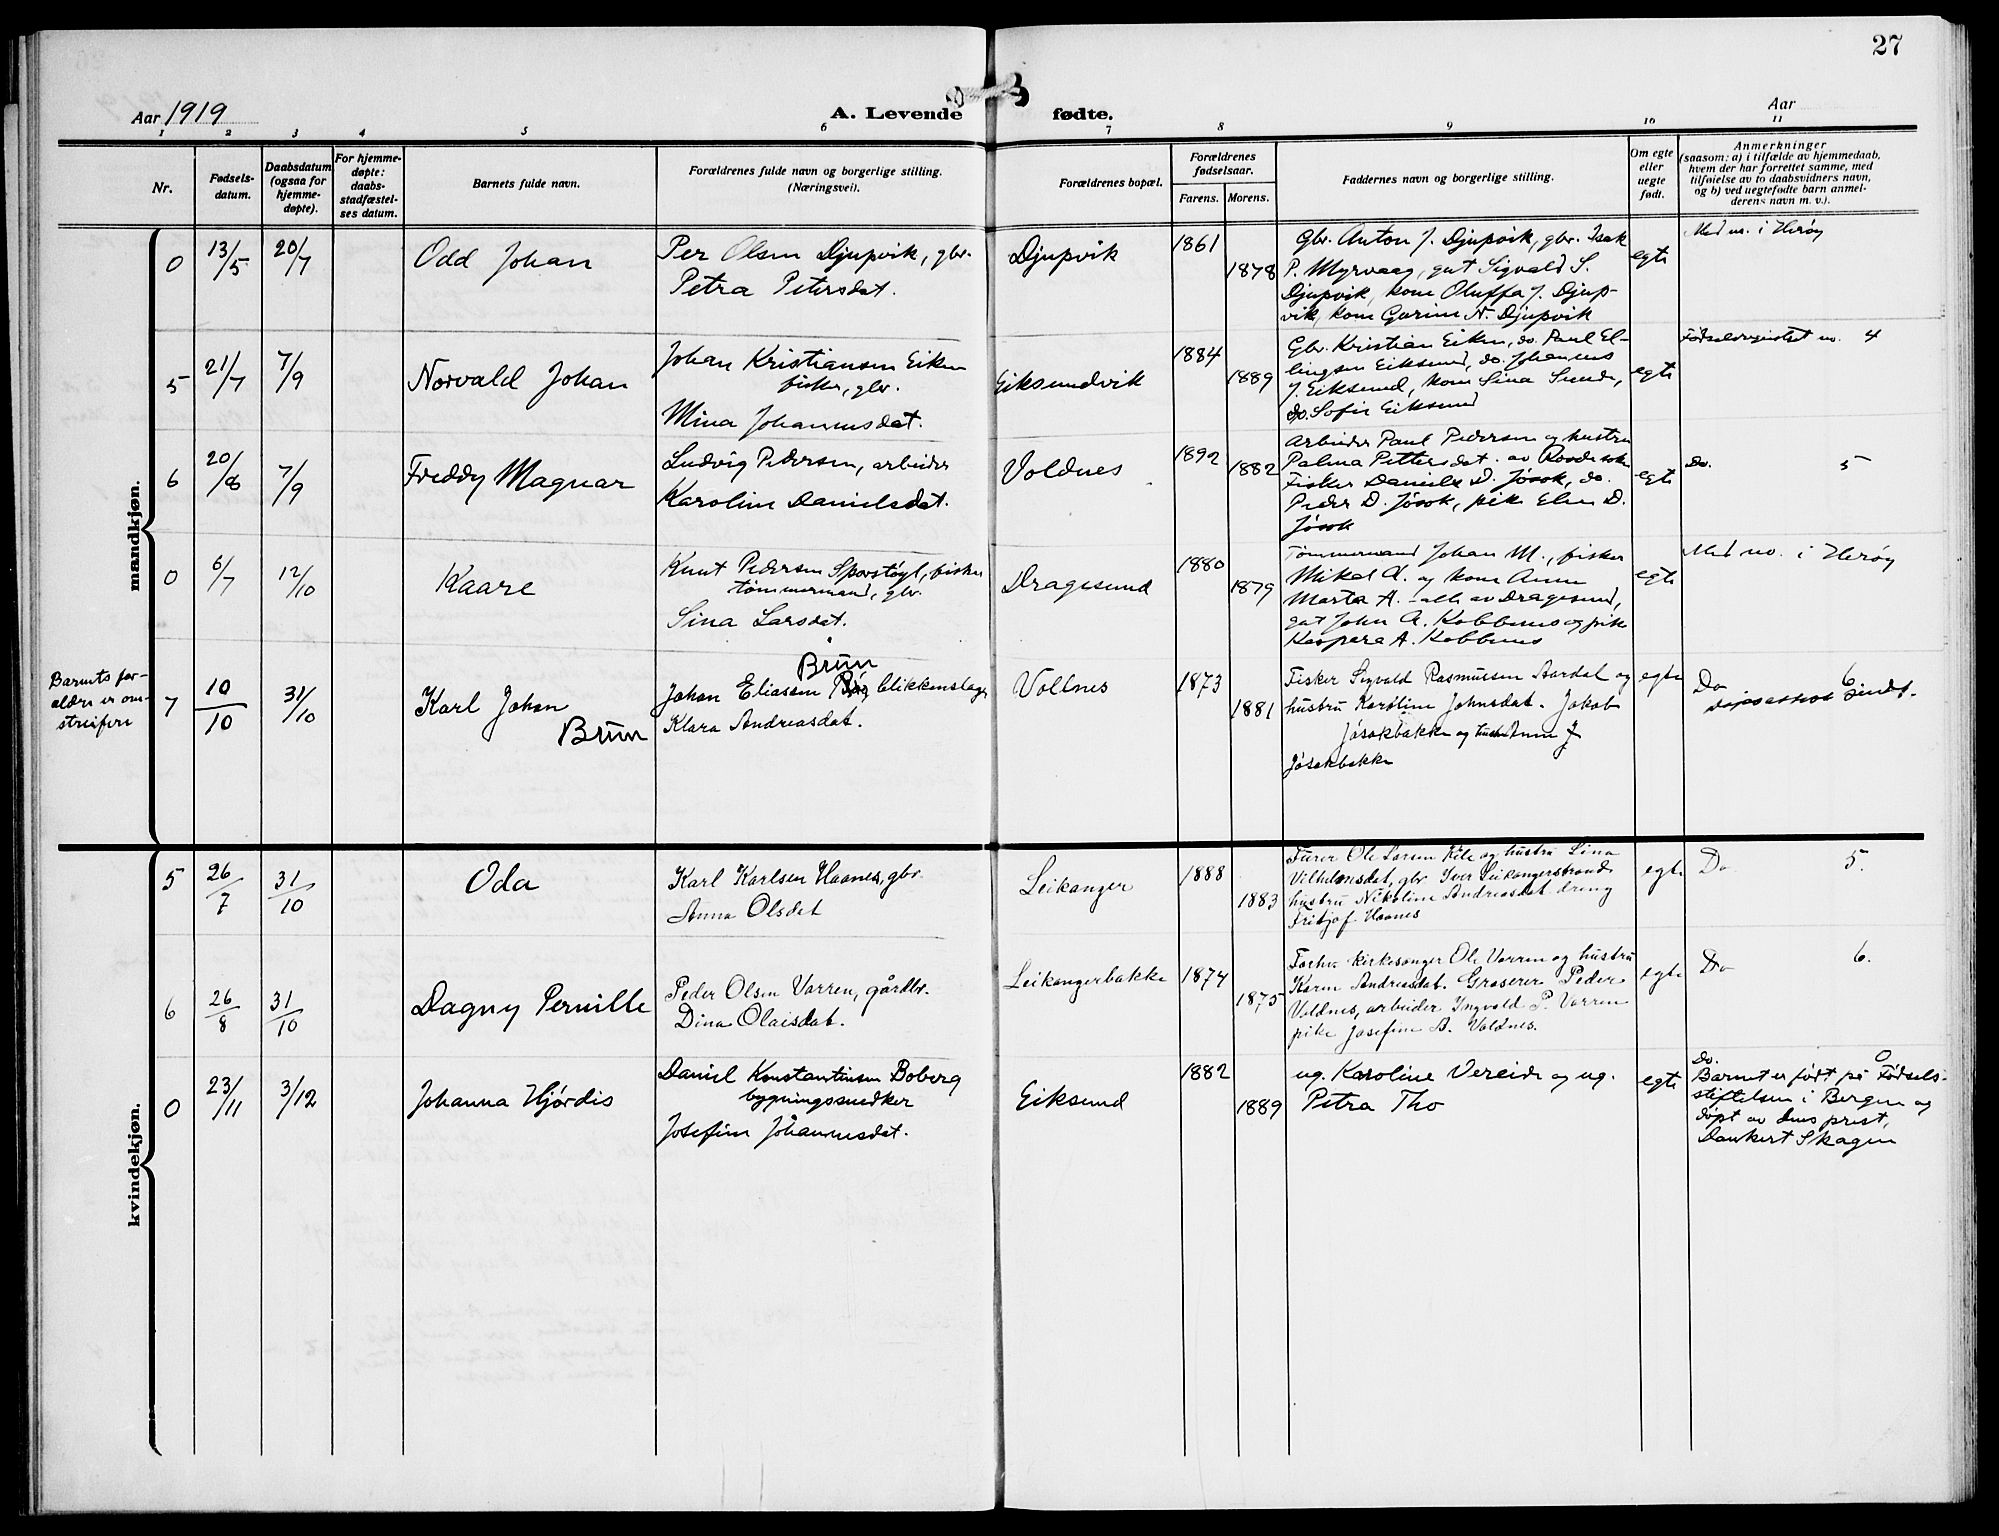 27
Aar 1919
A. Levende fødte.
Aar
1 2 3 4 5 6 7 8 9 10 11
Nr.
Fødsels-
datum.
Daabsdatum
(ogsaa for
hjemme-
døpte).
For hjemme-
døpte:
daabs-
stadfæstel-
ses datum.
Barnets fulde navn.
Forældrenes fulde navn og borgerlige stilling.
(Næringsvei).
Forældrenes bopæl.
Forældrenes
fødselsaar.
Farens. Morens.
Faddernes navn og borgerlige stilling.
Om egte
eller
uegte
født.
Anmerkninger
(saasom: a) i tilfælde av hjemmedaab,
hvem der har forrettet samme, med
tilføielse av to daabsvidners navn,
og b) ved uegtefødte barn anmel-
derens navn m. v.).
mandkjøn.
0 13/5 20/7
Odd Johan
Per Olsen Djupvik, gbr.
Petra Petersdat.
Djupvik
1861
1878
Gbr. Anton J. Djupvik, gbr. Isak
P. Myrvaag, gut Sigvald S.
Djupvik, kone Oluffa J. Djup-
vik, kone Gurine N. Djupvik
egte
Med no. i Herøy
5 21/7 7/9
Norvald Johan
Johan Kristiansen Eiken
fisker, gbr.
Mina Johannesdat.
Eiksundvik
1884
1889
Gbr. Kristian Eiken, do. Paul El-
lingsen Eiksund, do. Johannes
J. Eiksund, kone Sina Sunde,
do. Sofie Eiksund
egte
Fødselsregistret no. 4
6 20/8 7/9
Freddy Magnar
Ludvig Pedersen, arbeider
Karoline Danielsdat.
Voldnes
1892
1882
Arbeider Paul Pedersen og hustru
Palma Pettersdat. av
Fisker Daniels D. Jøsok, do.
Peder D. Jøsok, pike Elen D.
Jøsok
egte
Do. 5
0 6/7 12/10
Kaare
Knut Pedersen Sporstøyl, fisker
tømmermand, gbr.
Sina Larsdat.
Dragesund
1880
1879
Tømmermand Johan M., fisker
Mikal A. og kone Anne
Marta A. – alle av Dragesund,
gut John A. Kobbenes og pike
Kaspara A. Kobbenes
egte
Med no. i Herøy
Barnets for-
ældre er om-
streifere
7 10/10 31/10
Karl Johan
Brun
Brun
Johan Eliassen blikkenslager
Klara Andreasdat.
Vollnes
1873
1881
Fisker Sigvald Rasmussen Aardal og
hustru Karoline Johnsdat. Jakob
Jøsokbakke og hustru Anne J
Jøsokbakke
egte
Do 6
kvindekjøn.
5 26/7 31/10
Oda
Karl Karlsen Haanes, gbr.
Anna Olsdat
Leikanger
1888
1883
Furer Ole Larsen Kile og hustru Lina
Vilhelmsdat, gbr Iver Leikangerstrand
hustru Nikoline Andreasdat dreng
Fritjof Haanes
egte
Do 5.
6 26/8 31/10
Dagny Pernille
Peder Olsen Varren, gårdbr.
Dina Olaisdat.
Leikangerbakke
1874
1875
Forhv. kirkesanger Ole Varren og hustru
Karen Andreasdat. Grosserer Peder
Voldnes, arbeider Ingvald P. Varren
pike Josefine A. Voldnes.
egte
Do 6.
0 23/11 3/12
Johanna Hjørdis
Daniel Konstantinsen Boberg
bygningssnedker
Josefine Johannesdat.
Eiksund
1882
1889
ug. Karoline Vereide og ug.
Petra Tho
egte
Do. 0
Barnet er født på Fødsels-
stiftelsen i Bergen og
døpt av dens prest,
Dankert Skagen